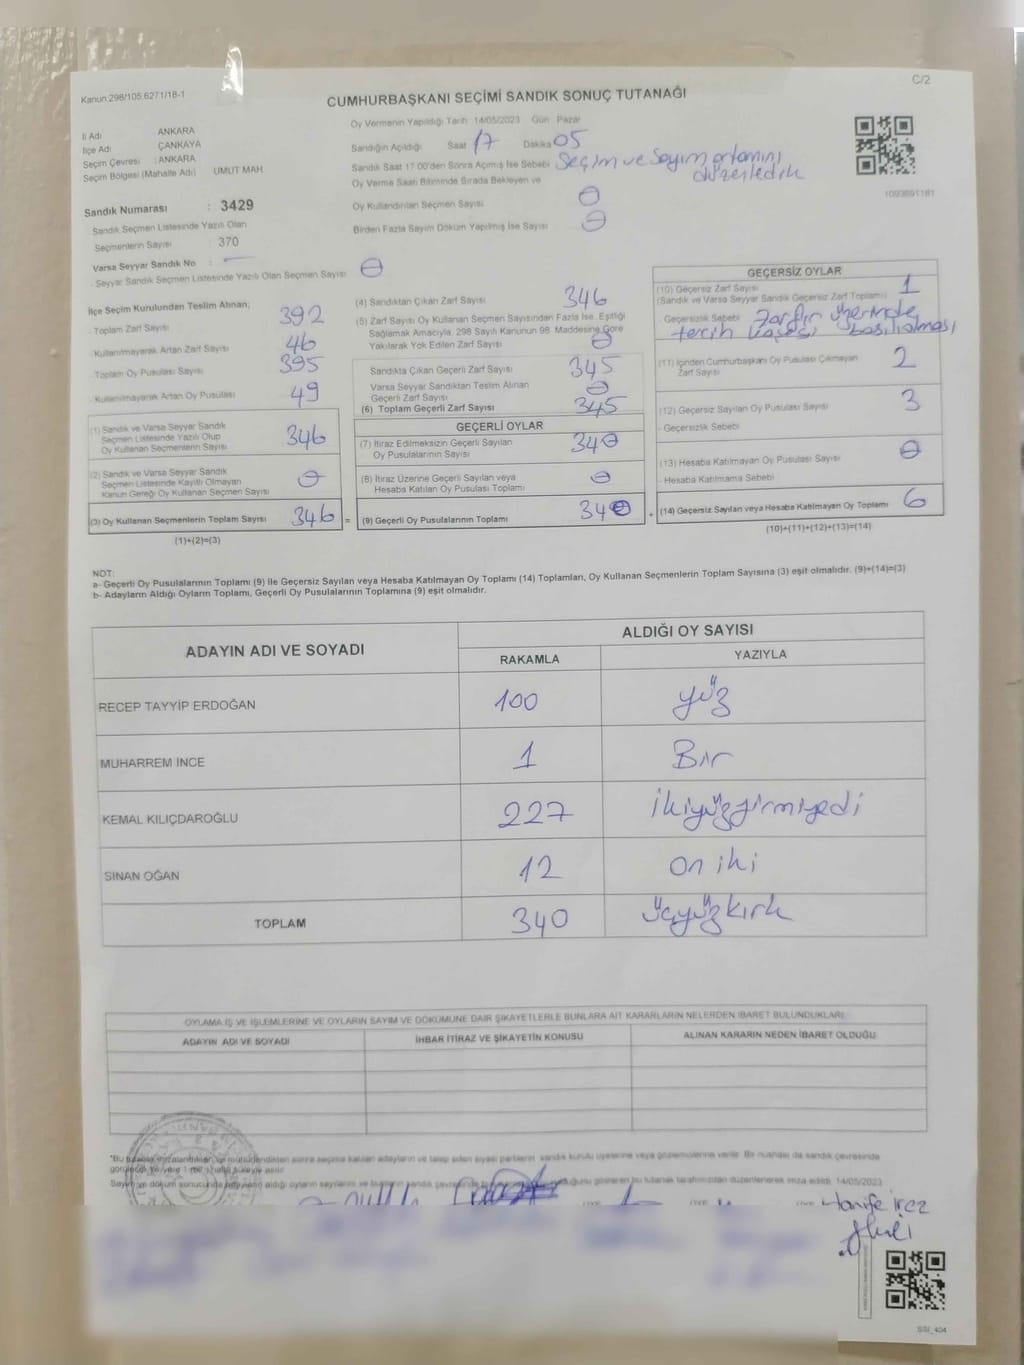 Kanun:298/105,6271/18-1
C/2
CUMHURBAŞKANI SEÇİMİ SANDIK SONUÇ TUTANAĞI
İl Adı : ANKARA
İlçe Adı : ÇANKAYA
Seçim Çevresi : ANKARA
Seçim Bölgesi (Mahalle Adı) UMUT MAH.
Sandık Numarası : 3429
Sandık Seçmen Listesinde Yazılı Olan
Seçmenlerin Sayısı : 370
Varsa Seyyar Sandık No : -
- Seyyar Sandık Seçmen Listesinde Yazılı Olan Seçmen Sayısı 0
Oy Vermenin Yapıldığı Tarih 14/05/2023 Gün Pazar
Sandığın Açıldığı Saat 17 Dakika 05
Sandık Saat 17.00'den Sonra Açılmış İse Sebebi Seçim ve Sayım ortamını
düzenledik
Oy Verme Saati Bitiminde Sırada Bekleyen ve
Oy Kullandırılan Seçmen Sayısı 0
Birden Fazla Sayım Döküm Yapılmış İse Sayısı 0
1093691181
İlçe Seçim Kurulundan Teslim Alınan;
- Toplam Zarf Sayısı 392
- Kullanılmayarak Artan Zarf Sayısı 46
- Toplam Oy Pusulası Sayısı 395
- Kullanılmayarak Artan Oy Pusulası 49
(1) Sandık ve Varsa Seyyar Sandık
Seçmen Listesinde Yazılı Olup
Oy Kullanan Seçmenlerin Sayısı 346
(2) Sandık ve Varsa Seyyar Sandık
Seçmen Listesinde Kayıtlı Olmayan
Kanun Gereği Oy Kullanan Seçmen Sayısı 0
(3) Oy Kullanan Seçmenlerin Toplam Sayısı 346 =
(1)+(2)=(3)
(4) Sandıktan Çıkan Zarf Sayısı 346
(5) Zarf Sayısı Oy Kullanan Seçmen Sayısından Fazla İse, Eşitliği
Sağlamak Amacıyla, 298 Sayılı Kanunun 98. Maddesine Göre
Yakılarak Yok Edilen Zarf Sayısı 0
Sandıkta Çıkan Geçerli Zarf Sayısı 345
Varsa Seyyar Sandıktan Teslim Alınan
Geçerli Zarf Sayısı 0
(6) Toplam Geçerli Zarf Sayısı 345
GEÇERLİ OYLAR
(7) İtiraz Edilmeksizin Geçerli Sayılan
Oy Pusulalarının Sayısı 340
(8) İtiraz Üzerine Geçerli Sayılan veya
Hesaba Katılan Oy Pusulası Toplamı 0
(9) Geçerli Oy Pusulalarının Toplamı 340 +
GEÇERSİZ OYLAR
(10) Geçersiz Zarf Sayısı 1
(Sandık ve Varsa Seyyar Sandık Geçersiz Zarf Toplamı)
Geçersizlik Sebebi Zarfın üzerinde
tercih kaşesi basılması
(11) İçinden Cumhurbaşkanı Oy Pusulası Çıkmayan
Zarf Sayısı 2
(12) Geçersiz Sayılan Oy Pusulası Sayısı 3
- Geçersizlik Sebebi
(13) Hesaba Katılmayan Oy Pusulası Sayısı 0
- Hesaba Katılmama Sebebi
(14) Geçersiz Sayılan veya Hesaba Katılmayan Oy Toplamı 6
(10)+(11)+(12)+(13)=(14)
NOT:
a- Geçerli Oy Pusulalarının Toplamı (9) İle Geçersiz Sayılan veya Hesaba Katılmayan Oy Toplamı (14) Toplamları, Oy Kullanan Seçmenlerin Toplam Sayısına (3) eşit olmalıdır. (9)+(14)=(3)
b- Adayların Aldığı Oyların Toplamı, Geçerli Oy Pusulalarının Toplamına (9) eşit olmalıdır.
ADAYIN ADI VE SOYADI
ALDIĞI OY SAYISI
RAKAMLA YAZIYLA
RECEP TAYYİP ERDOĞAN 100 yüz
MUHARREM İNCE 1 Bir
KEMAL KILIÇDAROĞLU 227 ikiyüzyirmiyedi
SİNAN OĞAN 12 on iki
TOPLAM 340 üçyüzkırk
OYLAMA İŞ VE İŞLEMLERİNE VE OYLARIN SAYIM VE DÖKÜMÜNE DAİR ŞİKAYETLERLE BUNLARA AİT KARARLARIN NELERDEN İBARET BULUNDUKLARI
ADAYIN ADI VE SOYADI İHBAR İTİRAZ VE ŞİKAYETİN KONUSU ALINAN KARARIN NEDEN İBARET OLDUĞU
sonra seçime katılan adayların ve talep eden siyasi partilerin sandık kurulu üyelerine veya gözlemcilerine verilir. Bir nüshası da sandık çevresinde
bu tutanak tarafımızdan düzenlenerek imza edildi. 14/05/2023
Hanife